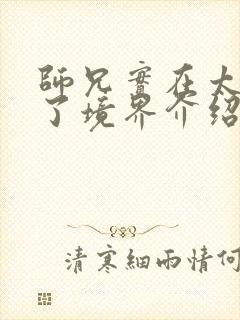 師兄實在太
了境界介紹
清寒細雨情何